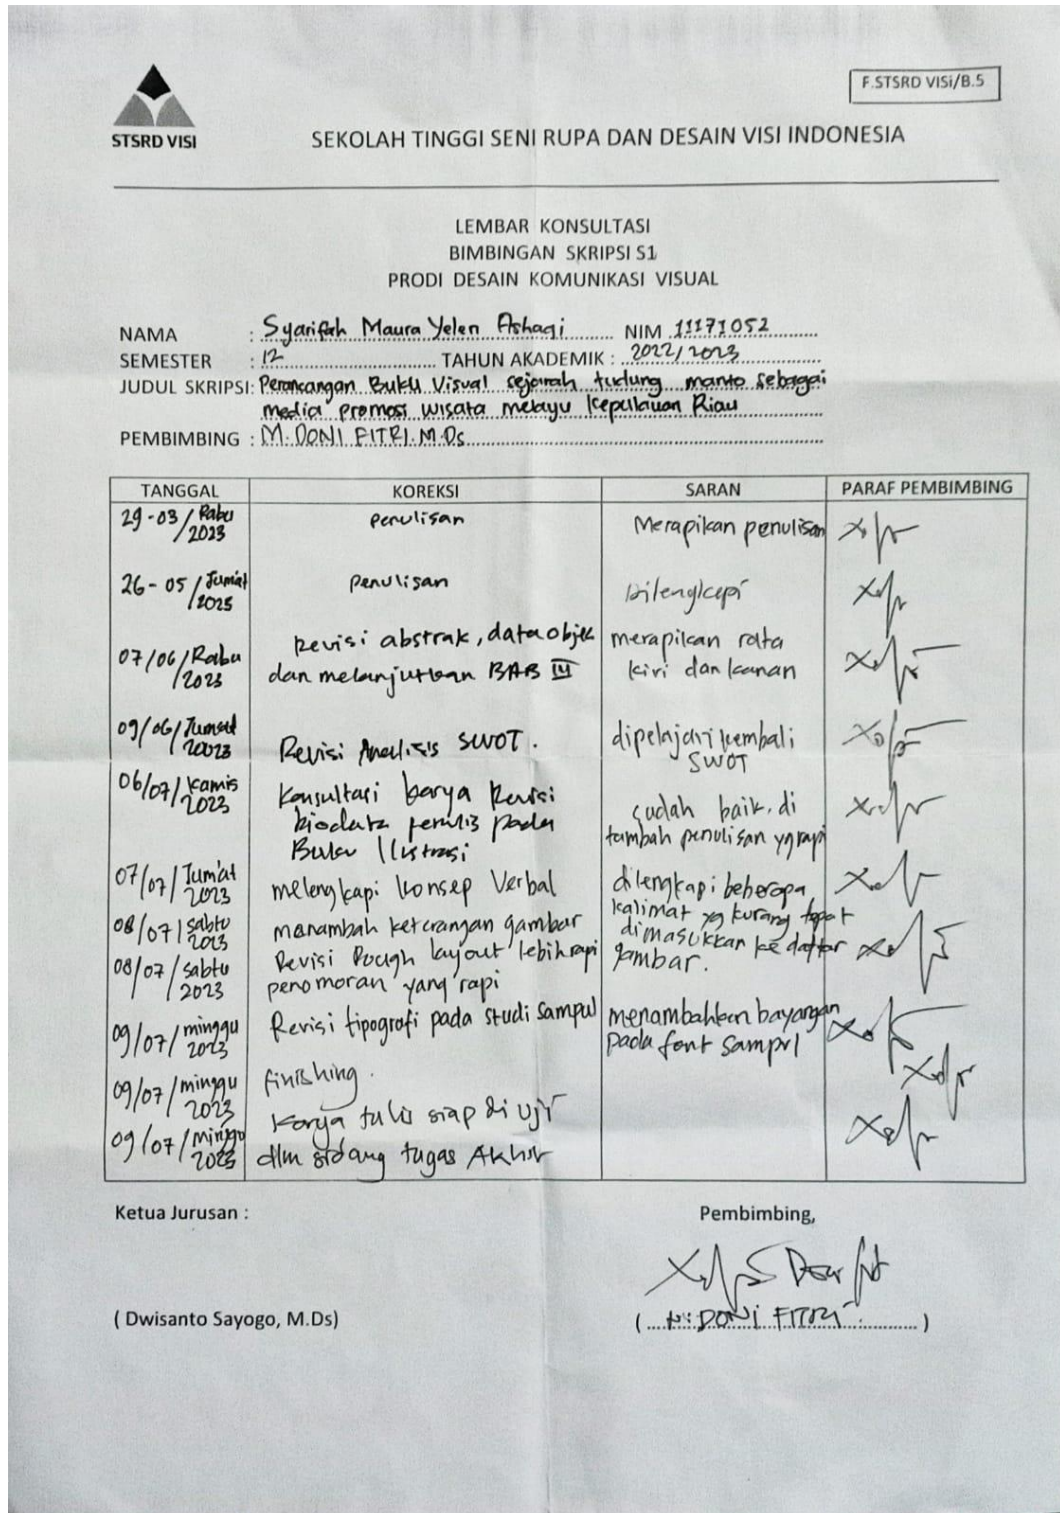 F.STSRD VISi/B.5
STSRD VISI
SEKOLAH TINGGI SENI RUPA DAN DESAIN VISI INDONESIA
LEMBAR KONSULTASI
BIMBINGAN SKRIPSI S1
PRODI DESAIN KOMUNIKASI VISUAL
NAMA : Syarifah Maura Yelen Ashaqi NIM 11171052
SEMESTER : 12 TAHUN AKADEMIK : 2022/2023
JUDUL SKRIPSI: Perancangan Buku Visual sejarah tudung manto sebagai
media promosi wisata melayu Kepulauan Riau
PEMBIMBING : M. DONI FITRI. M.Ds
TANGGAL KOREKSI SARAN PARAF PEMBIMBING
29-03/Rabu penulisan Merapikan penulisan
/2023
26-05/Jumat penulisan Dilengkapi
/2023
07/06/Rabu Revisi abstrak, data objek merapikan rata
/2023 dan melanjutkan BAB III kiri dan kanan
09/06/Jumat Revisi Analisis SWOT. dipelajari kembali
20023 SWOT
06/07/Kamis Konsultasi karya Revisi sudah baik, di
/2023 biodata penulis pada tambah penulisan yg rapi
Buku Ilustrasi
07/07/Jum'at melengkapi konsep Verbal dilengkapi beberapa
2023 kalimat yg kurang tepat
08/07/sabtu menambah keterangan gambar dimasukkan ke daftar
2023 Revisi Rough layout lebih rapi gambar.
08/07/sabtu penomoran yang rapi
2023
09/07/minggu Revisi tipografi pada studi sampul menambahkan bayangan
2023 pada font sampul
09/07/minggu finishing.
2023
09/07/minggu Karya tulis siap di uji
2023 dlm sidang tugas Akhir
Ketua Jurusan : Pembimbing,
( Dwisanto Sayogo, M.Ds) ( M. DONI FITRI )